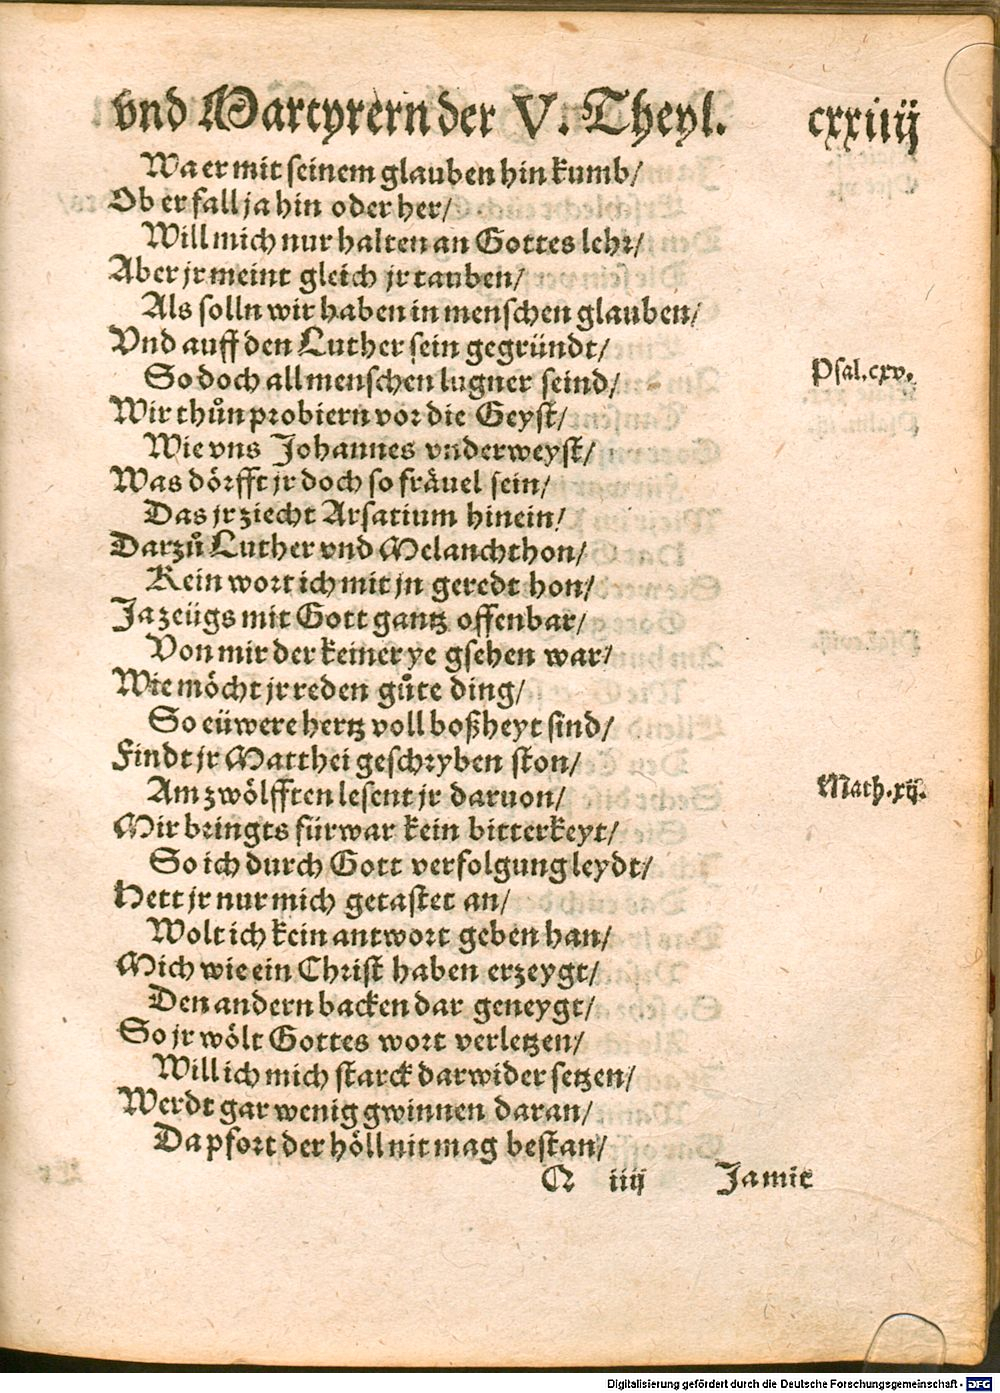 vnd Martyrern der V. Theyl. cxxiiij
Wa er mit seinem glauben hin kumb/
Ob er fall ja hin oder her/
Will mich nur halten an Gottes lehr/
Aber jr meint gleich jr tauben/
Als solln wir haben in menschen glauben/
Vnd auff den Luther sein gegründt/
So doch all menschen lugner seind/ Psal.cxv.
Wir thůn probiern vor die Geyst/
Wie vns Johannes vnderweyst/
Was dörfft jr doch so frävel sein/
Das jr ziecht Arsatium hinein/
Darzů Luther vnd Melanchthon/
Kein wort ich mit jn geredt hon/
Ja zeügs mit Gott gantz offenbar/
Von mir der keiner ye gsehen war/
Wie möcht jr reden gůte ding/
So eüwere hertz voll boßheyt sind/
Findt jr Matthei geschryben ston/
Am zwölfften lesent jr daruon/ Math.xij.
Mir bringts fürwar kein bitterkeyt/
So ich durch Gott verfolgung leydt/
Hett jr nur mich getastet an/
Wolt ich kein antwort geben han/
Mich wie ein Christ haben erzeygt/
Den andern backen dar geneygt/
So jr wölt Gottes wort verletzen/
Will ich mich starck darwider setzen/
Werdt gar wenig gwinnen daran/
Da pfort der höll nit mag bestan/
Q iiij Ja mit
Digitalisierung gefördert durch die Deutsche Forschungsgemeinschaft - DFG